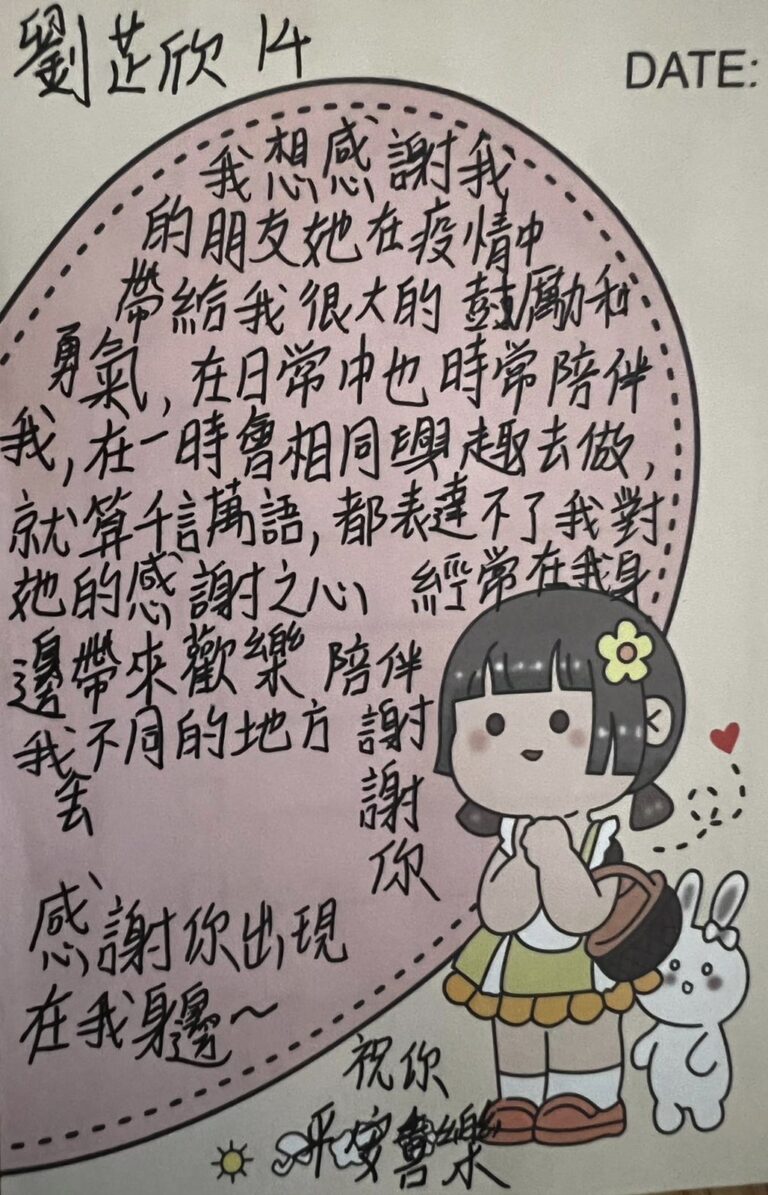 劉芷欣 14
DATE:
我想感謝我
的朋友她在疫情中
帶給我很大的鼓勵和
勇氣,在日常中也時常陪伴
我,在一時會相同興趣去做,
就算千言萬語,都表達不了我對
她的感謝之心 經常在我身
邊帶來歡樂 陪伴
我不同的地方
去
謝
謝
你
感謝你出現
在我身邊~
祝你
平安喜樂